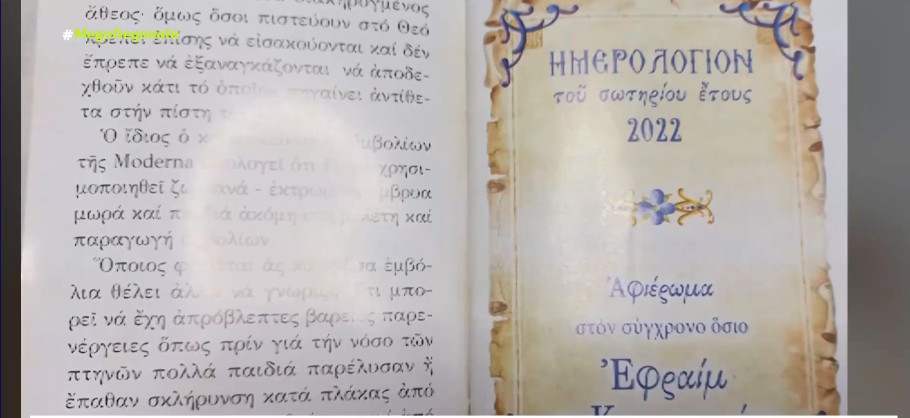 #MegaGegonota
ἄθεος· ὅμως ὅσοι πιστεύουν στό Θεό
πρέπει ἐπίσης νά εἰσακούονται καί δέν
ἔπρεπε νά ἐξαναγκάζονται νά ἀποδε-
χθοῦν κάτι τό ὁποῖον πηγαίνει ἀντίθε-
τα στήν πίστη
Ὁ ἴδιος ὁ
τῆς Moderna ὁμολογεῖ ὅτι χρησι-
μοποιηθεῖ ζωντανά - ἐκτρωμένα ἔμβρυα
μωρά καί παιδιά ἀκόμη στή μελέτη καί
παραγωγή ἐμβολίων.
Ὅποιος ἐμβό-
λια θέλει ἀλλά νά γνωρίζει ὅτι μπο-
ρεῖ νά ἔχη ἀπρόβλεπτες βαρειές παρε-
νέργειες ὅπως πρίν γιά τήν νόσο τῶν
πτηνῶν πολλά παιδιά παρέλυσαν ἤ
ἔπαθαν σκλήρυνση κατά πλάκας ἀπό
ΗΜΕΡΟΛΟΓΙΟΝ
τοῦ σωτηρίου ἔτους
2022
Ἀφιέρωμα
στόν σύγχρονο ὅσιο
Ἐφραίμ